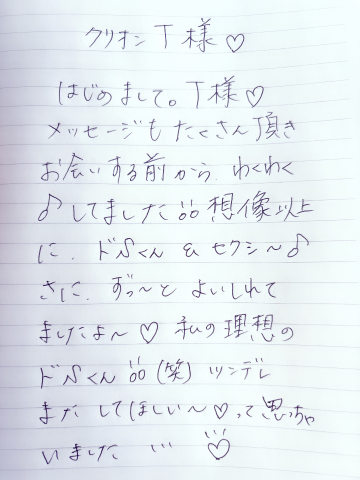 クリオン T様♡
はじめまして。T様♡
メッセージもたくさん頂き
お会いする前から、わくわく
♪してました。想像以上
に、ドSくん & セクシ〜♪
さに、ずっ〜と よいしれて
ましたよ〜♡ 私の理想の
ドSくん (笑) ツンデレ
また してほしい〜♡って思っちゃ
いました … ♡